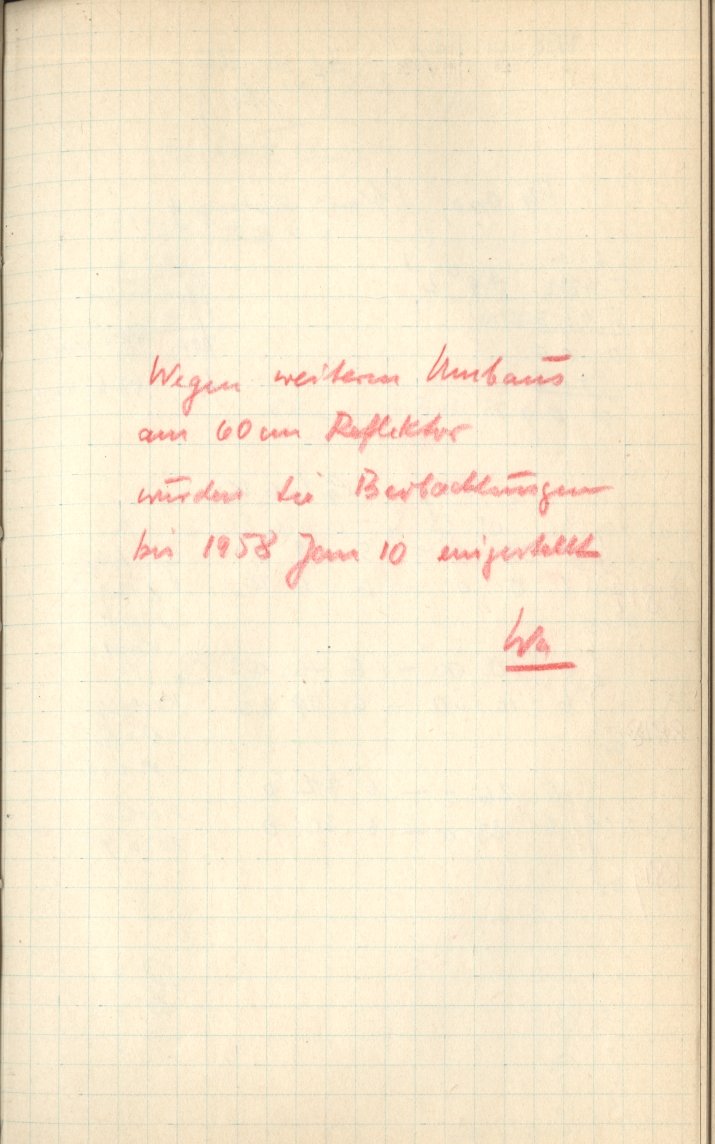 Wegen weiteren Umbaus
am 60 cm Reflektor
wurden die Beobachtungen
bis 1958 Jan 10 eingestellt